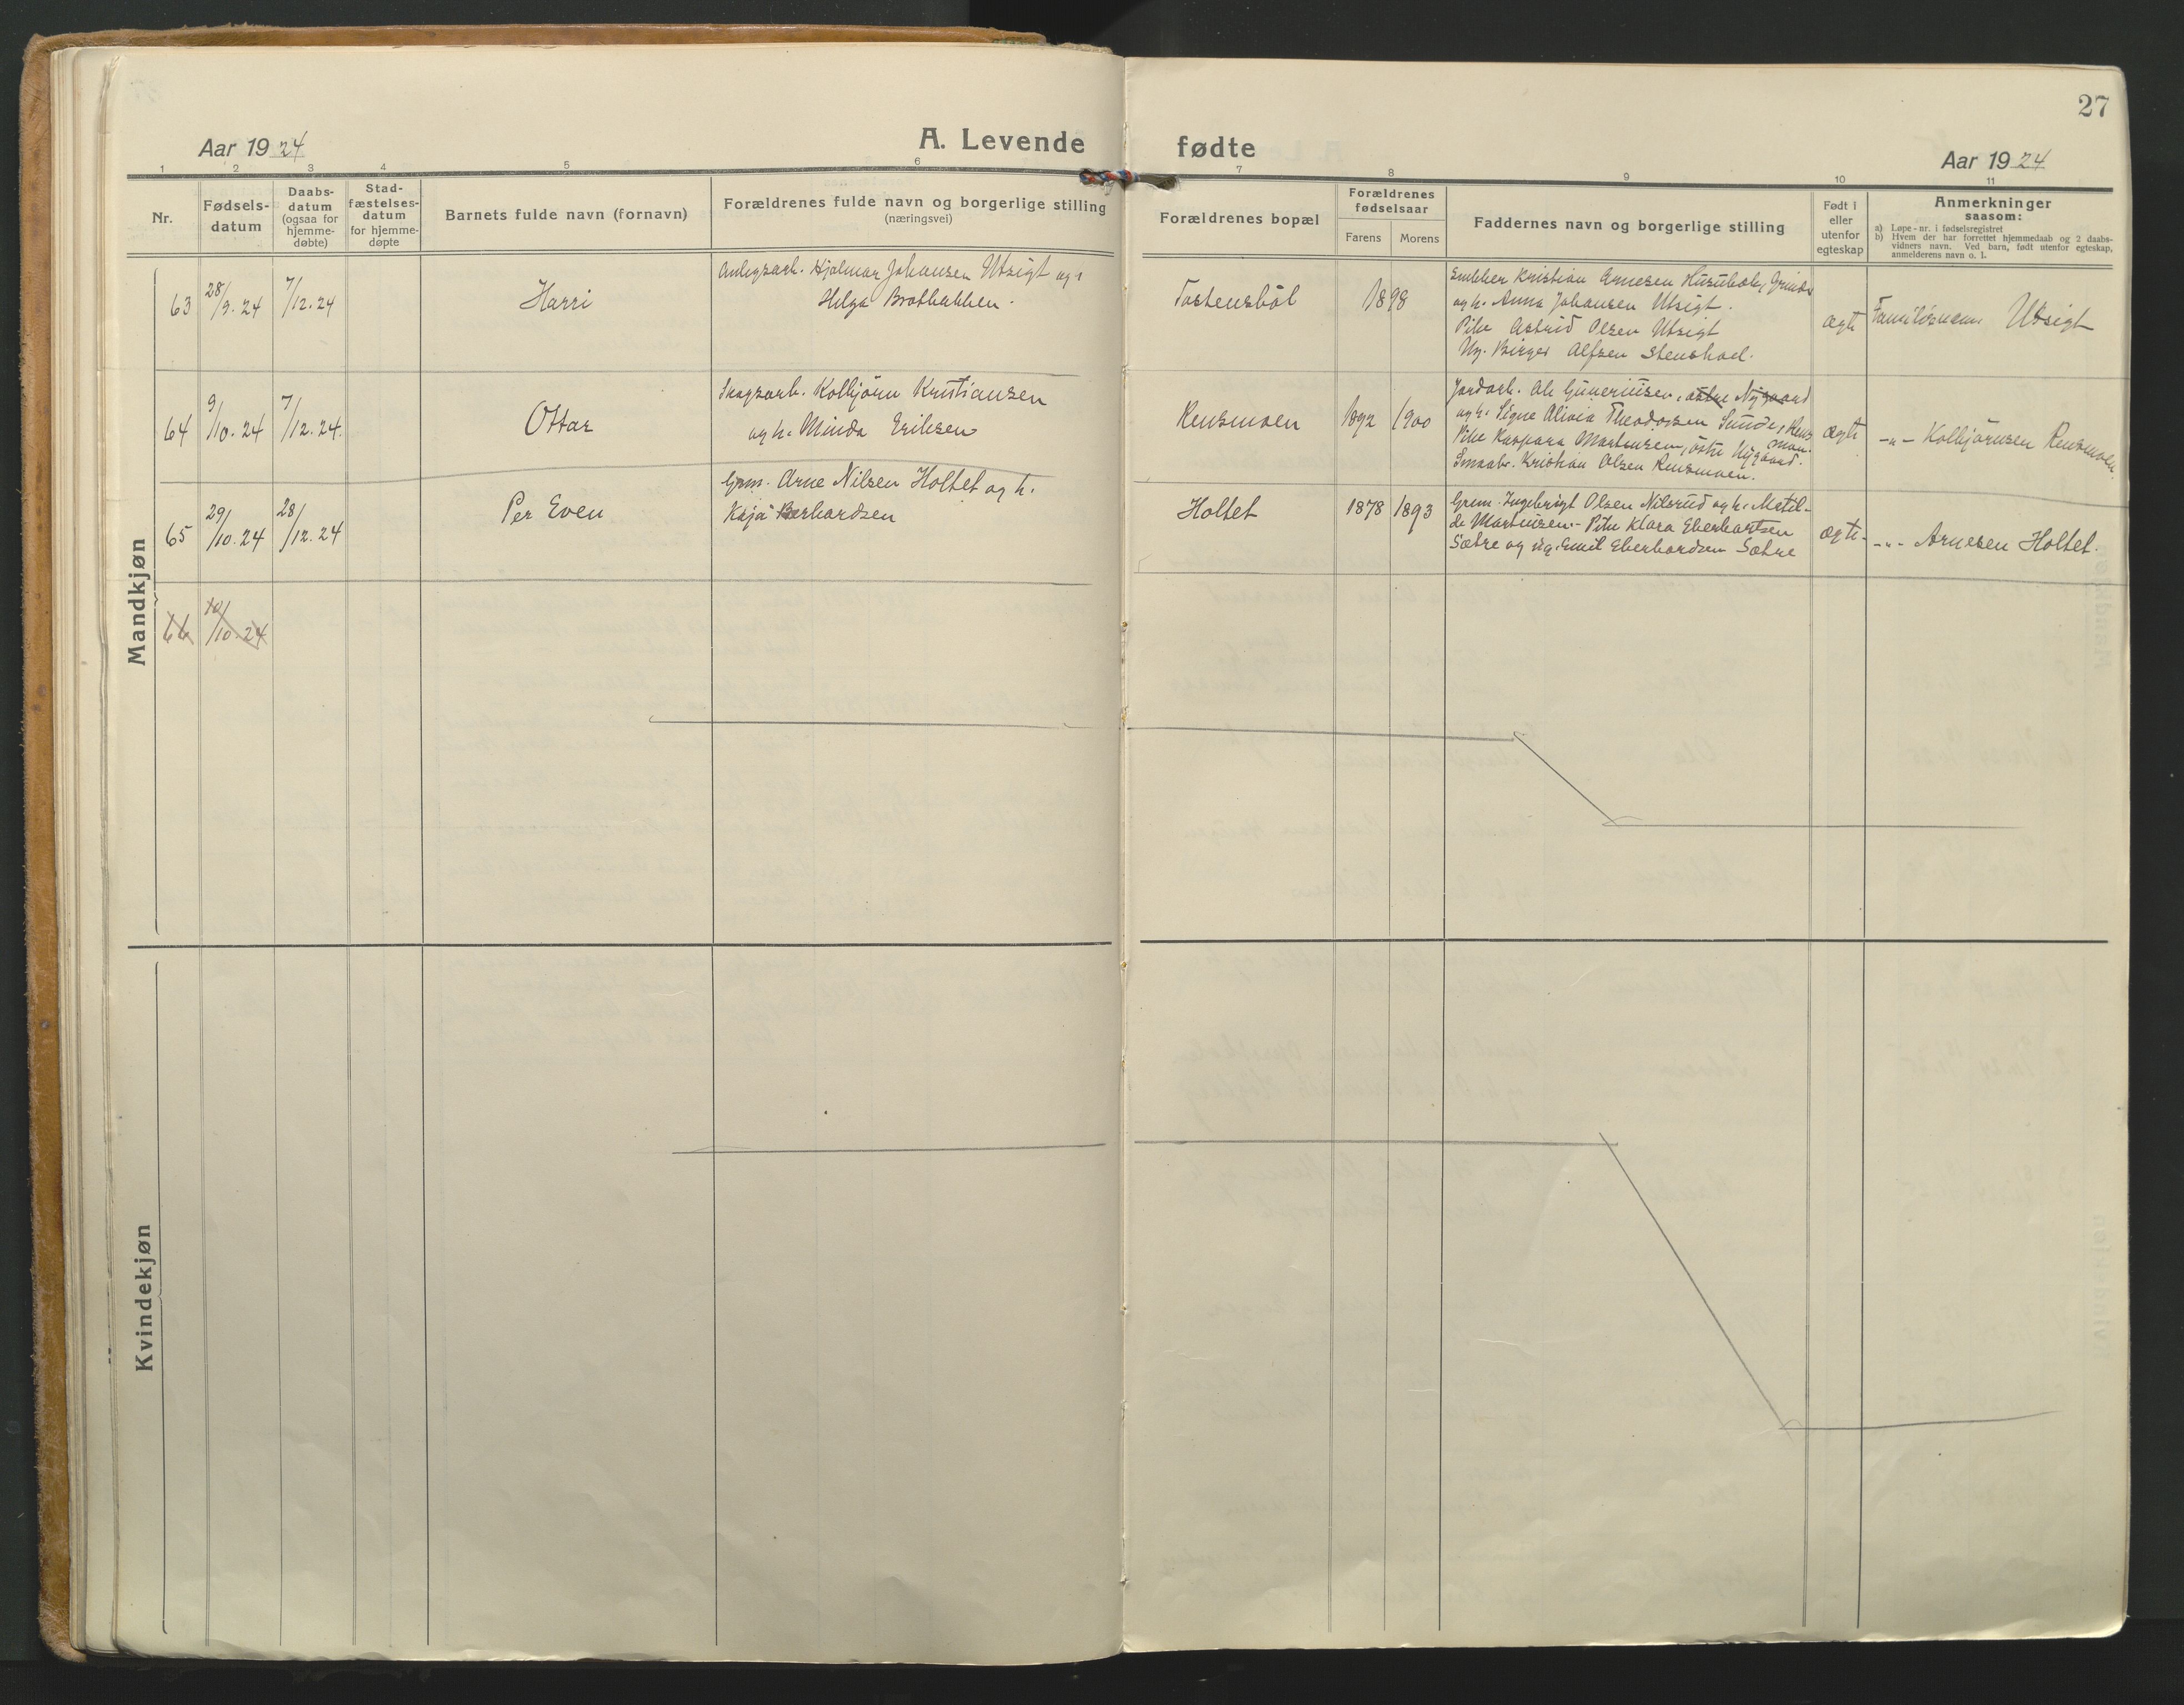 27
Aar 1924
A. Levende fødte
Aar 1924
1 2 3 4 5 6 7 8 9 10 11
Nr.
Fødsels-
datum
Daabs-
datum
(ogsaa for
hjemme-
døbte)
Stad-
fæstelses-
datum
for hjemme-
døpte
Barnets fulde navn (fornavn)
Forældrenes fulde navn og borgerlige stilling
(næringsvei)
Forældrenes bopæl
Forældrenes
fødselsaar
Farens Morens
Faddernes navn og borgerlige stilling
Født i
eller
utenfor
egteskap
Anmerkninger
saasom:
a) Løpe-nr. i fødselsregistret
b) Hvem der har forrettet hjemmedaab og 2 daabs-
vidners navn. Ved barn, født utenfor egteskap,
anmelderens navn o. l.
Mandkjøn
63 28/9.24 7/12.24 Harri
Anlegsarb. Hjalmar Johansen Utsigt og h.
Helga Bratbakken.
Tostensböl 1898
Snekker Kristian Arnesen Grinder
og h. Anna Johansen Utsigt.
Pike Astrid Olsen Utsigt
Ug. Birger Alfsen
ægte
Familienavn Utsigt
64 9/10.24 7/12.24. Ottar
Skogsarb. Kolbjörn Kristiansen
og h. Minda Eriksen
Rensmoen 1892 1900
Jordarb. Ole Guneriusen, østre Nygaard
og h. Signe Alivia Theodorsen Sunde, Rens
moen.
Pike Kaspara Martensen, östre Nygaard.
Smaabr. Kristian Olsen Rensmoen.
ægte
-"- Kolbjörnsen Rensmoen.
65 29/10.24 28/12.24 Per Even
Grm. Arne Nilsen Holtet og h.
Kaja Berhardsen
Holtet 1878 1893
Grm. Ingebrigt Olsen Nilsrud og h. Matil-
de Martinsen.- Pike Klara Eberhartsen
Sætre og ug. Emil Eberhardsen Sætre
ægte.
-"- Arnesen Holtet.
66 10/10.24
Kvindekjøn